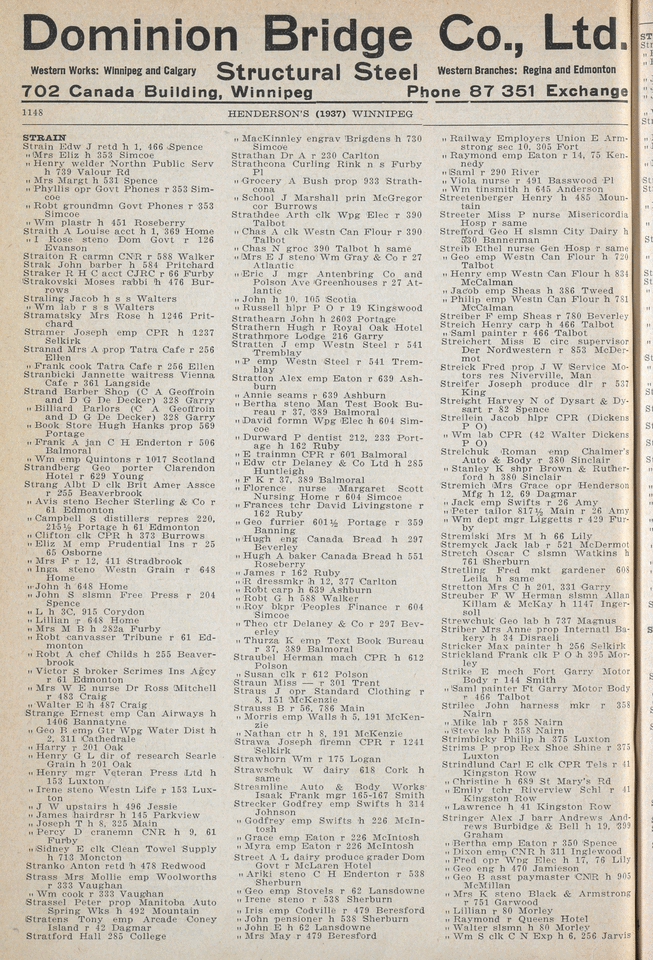 Dominion Bridge Co., Ltd.
Western Works: Winnipeg and Calgary Structural Steel Western Branches: Regina and Edmonton
702 Canada Building, Winnipeg Phone 87 351 Exchange
1148 HENDERSON'S (1937) WINNIPEG
STRAIN
Strain Edw J retd h 1, 466 Spence
" Mrs Eliz h 353 Simcoe
" Henry welder Northn Public Serv
h 739 Valour Rd
" Mrs Margt h 531 Spence
" Phyllis opr Govt Phones r 353 Sim-
coe
" Robt groundmn Govt Phones r 353
Simcoe
" Wm plastr h 451 Roseberry
Straith A Louise acct h 1, 369 Home
" I Rose steno Dom Govt r 126
Evanson
Straiton R carmn CNR r 588 Walker
Strak John barber h 584 Pritchard
Straker R H C acct CJRC r 66 Furby
Strakovski Moses rabbi h 476 Bur-
rows
Straling Jacob h s s Walters
" Wm lab r s s Walters
Stramatsky Mrs Rose h 1246 Prit-
chard
Stramer Joseph emp CPR h 1237
Selkirk
Stranad Mrs A prop Tatra Cafe r 256
Ellen
" Frank cook Tatra Cafe r 256 Ellen
Stranbicki Jannette waitress Vienna
Cafe r 361 Langside
Strand Barber Shop (C A Geoffroin
and D G De Decker) 328 Garry
" Billiard Parlors (C A Geoffroin
and D G De Decker) 328 Garry
" Book Store Hugh Hanks prop 569
Portage
" Frank A jan C H Enderton r 506
Balmoral
" Wm emp Quintons r 1017 Scotland
Strandberg Geo porter Clarendon
Hotel r 629 Young
Strang Albt D clk Brit Amer Assce
r 255 Beaverbrook
" Avis steno Becher Sterling & Co r
61 Edmonton
" Campbell S distillers repres 220,
215½ Portage h 61 Edmonton
" Clifton clk CPR h 373 Burrows
" Eliz M emp Prudential Ins r 25
65 Osborne
" Mrs F r 12, 411 Stradbrook
" Inga steno Westn Grain r 648
Home
" John h 648 Home
" John S slsmn Free Press r 204
Spence
" L h 3C, 915 Corydon
" Lillian r 648 Home
" Mrs M B h 282a Furby
" Robt canvasser Tribune r 61 Ed-
monton
" Robt A chef Childs h 255 Beaver-
brook
" Victor S broker Scrimes Ins Agcy
r 61 Edmonton
" Mrs W E nurse Dr Ross Mitchell
r 483 Craig
" Walter E h 487 Craig
Strange Ernest emp Can Airways h
1406 Bannatyne
" Geo B emp Gtr Wpg Water Dist h
2, 311 Cathedrale
" Harry r 201 Oak
" Henry G L dir of research Searle
Grain h 201 Oak
" Henry mgr Veteran Press Ltd h
153 Luxton
" Irene steno Westn Life r 153 Lux-
ton
" J W upstairs h 496 Jessie
" James hairdrsr h 145 Parkview
" Joseph T h 8, 325 Main
" Percy D cranemn CNR h 9, 61
Furby
" Sidney E clk Clean Towel Supply
h 713 Moncton
Stranko Anton retd h 478 Redwood
Strass Mrs Mollie emp Woolworths
r 333 Vaughan
" Wm cook r 333 Vaughan
Strassel Peter prop Manitoba Auto
Spring Wks h 492 Mountain
Stratens Tony emp Arcade Coney
Island r 42 Dagmar
Stratford Hall 285 College
" MacKinnley engrav Brigdens h 730
Simcoe
Strathan Dr A r 230 Carlton
Strathcona Curling Rink n s Furby
Pl
" Grocery A Bush prop 933 Strath-
cona
" School J Marshall prin McGregor
cor Burrows
Strathdee Arth clk Wpg Elec r 390
Talbot
" Chas A clk Westn Can Flour r 390
Talbot
" Chas N groc 390 Talbot h same
" Mrs E J steno Wm Gray & Co r 27
Atlantic
" Eric J mgr Antenbring Co and
Polson Ave Greenhouses r 27 At-
lantic
" John h 10, 105 Scotia
" Russell hlpr P O r 19 Kingswood
Strathearn John h 2603 Portage
Strathern Hugh r Royal Oak Hotel
Strathmore Lodge 216 Garry
Stratten J emp Westn Steel r 541
Tremblay
" P emp Westn Steel r 541 Trem-
blay
Stratton Alex emp Eaton r 639 Ash-
burn
" Annie seams r 639 Ashburn
" Bertha steno Man Test Book Bu-
reau r 37, 389 Balmoral
" David formn Wpg Elec h 604 Sim-
coe
" Durward P dentist 212, 233 Port-
age h 162 Ruby
" E trainmn CPR r 601 Balmoral
" Edw ctr Delaney & Co Ltd h 285
Huntleigh
" F K r 37, 389 Balmoral
" Florence nurse Margaret Scott
Nursing Home r 604 Simcoe
" Frances tchr David Livingstone r
162 Ruby
" Geo furrier 601½ Portage r 359
Banning
" Hugh eng Canada Bread h 297
Beverley
" Hugh A baker Canada Bread h 551
Roseberry
" James r 162 Ruby
" R dressmkr h 12, 377 Carlton
" Robt carp h 639 Ashburn
" Robt G h 588 Walker
" Roy bkpr Peoples Finance r 604
Simcoe
" Theo ctr Delaney & Co r 297 Bev-
erley
" Thurza K emp Text Book Bureau
r 37, 389 Balmoral
Straubel Herman mach CPR h 612
Polson
" Susan clk r 612 Polson
Straun Miss — r 301 Trent
Straus J opr Standard Clothing r
8, 151 McKenzie
Strauss B r 56, 786 Main
" Morris emp Walls h 5, 191 McKen-
zie
" Nathan ctr h 8, 191 McKenzie
Strawa Joseph firemn CPR r 1241
Selkirk
Strawhorn Wm r 175 Logan
Strawschuk W dairy 618 Cork h
same
Streamline Auto & Body Works
Isaak Frank mgr 165-167 Smith
Strecker Godfrey emp Swifts h 314
Johnson
" Godfrey emp Swifts h 226 McIn-
tosh
" Grace emp Eaton r 226 McIntosh
" Myra emp Eaton r 226 McIntosh
Street A L dairy produce grader Dom
Govt r McLaren Hotel
" Ariki steno C H Enderton r 538
Sherburn
" Geo emp Stovels r 62 Lansdowne
" Irene steno r 538 Sherburn
" Iris emp Codville r 479 Beresford
" John pensioner h 538 Sherburn
" John E h 62 Lansdowne
" Mrs May r 479 Beresford
" Railway Employers Union E Arm-
strong sec 10, 305 Fort
" Raymond emp Eaton r 14, 75 Ken-
nedy
" Saml r 290 River
" Viola nurse r 491 Basswood Pl
" Wm tinsmith h 645 Anderson
Streetenberger Henry h 485 Moun-
tain
Streeter Miss P nurse Misericordia
Hosp r same
Strefford Geo H slsmn City Dairy h
330 Bannerman
Streib Ethel nurse Gen Hosp r same
" Geo emp Westn Can Flour h 720
Talbot
" Henry emp Westn Can Flour h 834
McCalman
" Jacob emp Sheas h 386 Tweed
" Philip emp Westn Can Flour h 781
McCalman
Streiber P emp Sheas r 780 Beverley
Streich Henry carp h 466 Talbot
" Saml painter r 466 Talbot
Streichert Miss E circ supervisor
Der Nordwestern r 853 McDer-
mot
Streick Fred prop J W Service Mo-
tors res Niverville, Man
Streifer Joseph produce dlr r 537
King
Streight Harvey N of Dysart & Dy-
sart r 82 Spence
Streilein Jacob hlpr CPR (Dickens
P O)
" Wm lab CPR (42 Walter Dickens
P O)
Strelchuk Roman emp Chalmer's
Auto & Body r 380 Sinclair
" Stanley K shpr Brown & Ruther-
ford h 380 Sinclair
Stremich Mrs Grace opr Henderson
Mfg h 12, 69 Dagmar
" Jack emp Swifts r 26 Amy
" Peter tailor 817½ Main r 26 Amy
" Wm dept mgr Liggetts r 429 Fur-
by
Stremiski Mrs M h 66 Lily
Stremyck Jack lab r 521 McDermot
Stretch Oscar C slsmn Watkins h
761 Sherburn
Stretling Fred mkt gardener 608
Leila h same
Stretton Mrs C h 201, 331 Garry
Streuber F W Herman slsmn Allan
Killam & McKay h 1147 Inger-
soll
Strewchuk Geo lab h 737 Magnus
Striber Mrs Anne prop Internatl Ba-
kery h 34 Disraeli
Stricker Max painter h 256 Selkirk
Strickland Frank clk P O h 395 Mor-
ley
Strike E mech Fort Garry Motor
Body r 144 Smith
" Saml painter Ft Garry Motor Body
r 466 Talbot
Strilec John harness mkr r 358
Nairn
" Mike lab r 358 Nairn
" Steve lab h 358 Nairn
Strimbicky Philip h 375 Luxton
Strims P prop Rex Shoe Shine r 375
Luxton
Strindlund Carl E clk CPR Tels r 41
Kingston Row
" Christine h 669 St Mary's Rd
" Emily tchr Riverview Schl r 41
Kingston Row
" Lawrence h 41 Kingston Row
Stringer Alex J barr Andrews And-
rews Burbidge & Bell h 19, 399
Graham
" Bertha emp Eaton r 350 Spence
" Dixon emp CNR h 311 Inglewood
" Fred opr Wpg Elec h 17, 76 Lily
" Geo eng h 470 Jamieson
" Geo B asst paymaster CNR h 905
McMillan
" Mrs K steno Black & Armstrong
r 751 Garwood
" Lillian r 80 Morley
" Raymond r Queens Hotel
" Walter slsmn h 80 Morley
" Wm S clk C N Exp h 6, 256 Jarvis